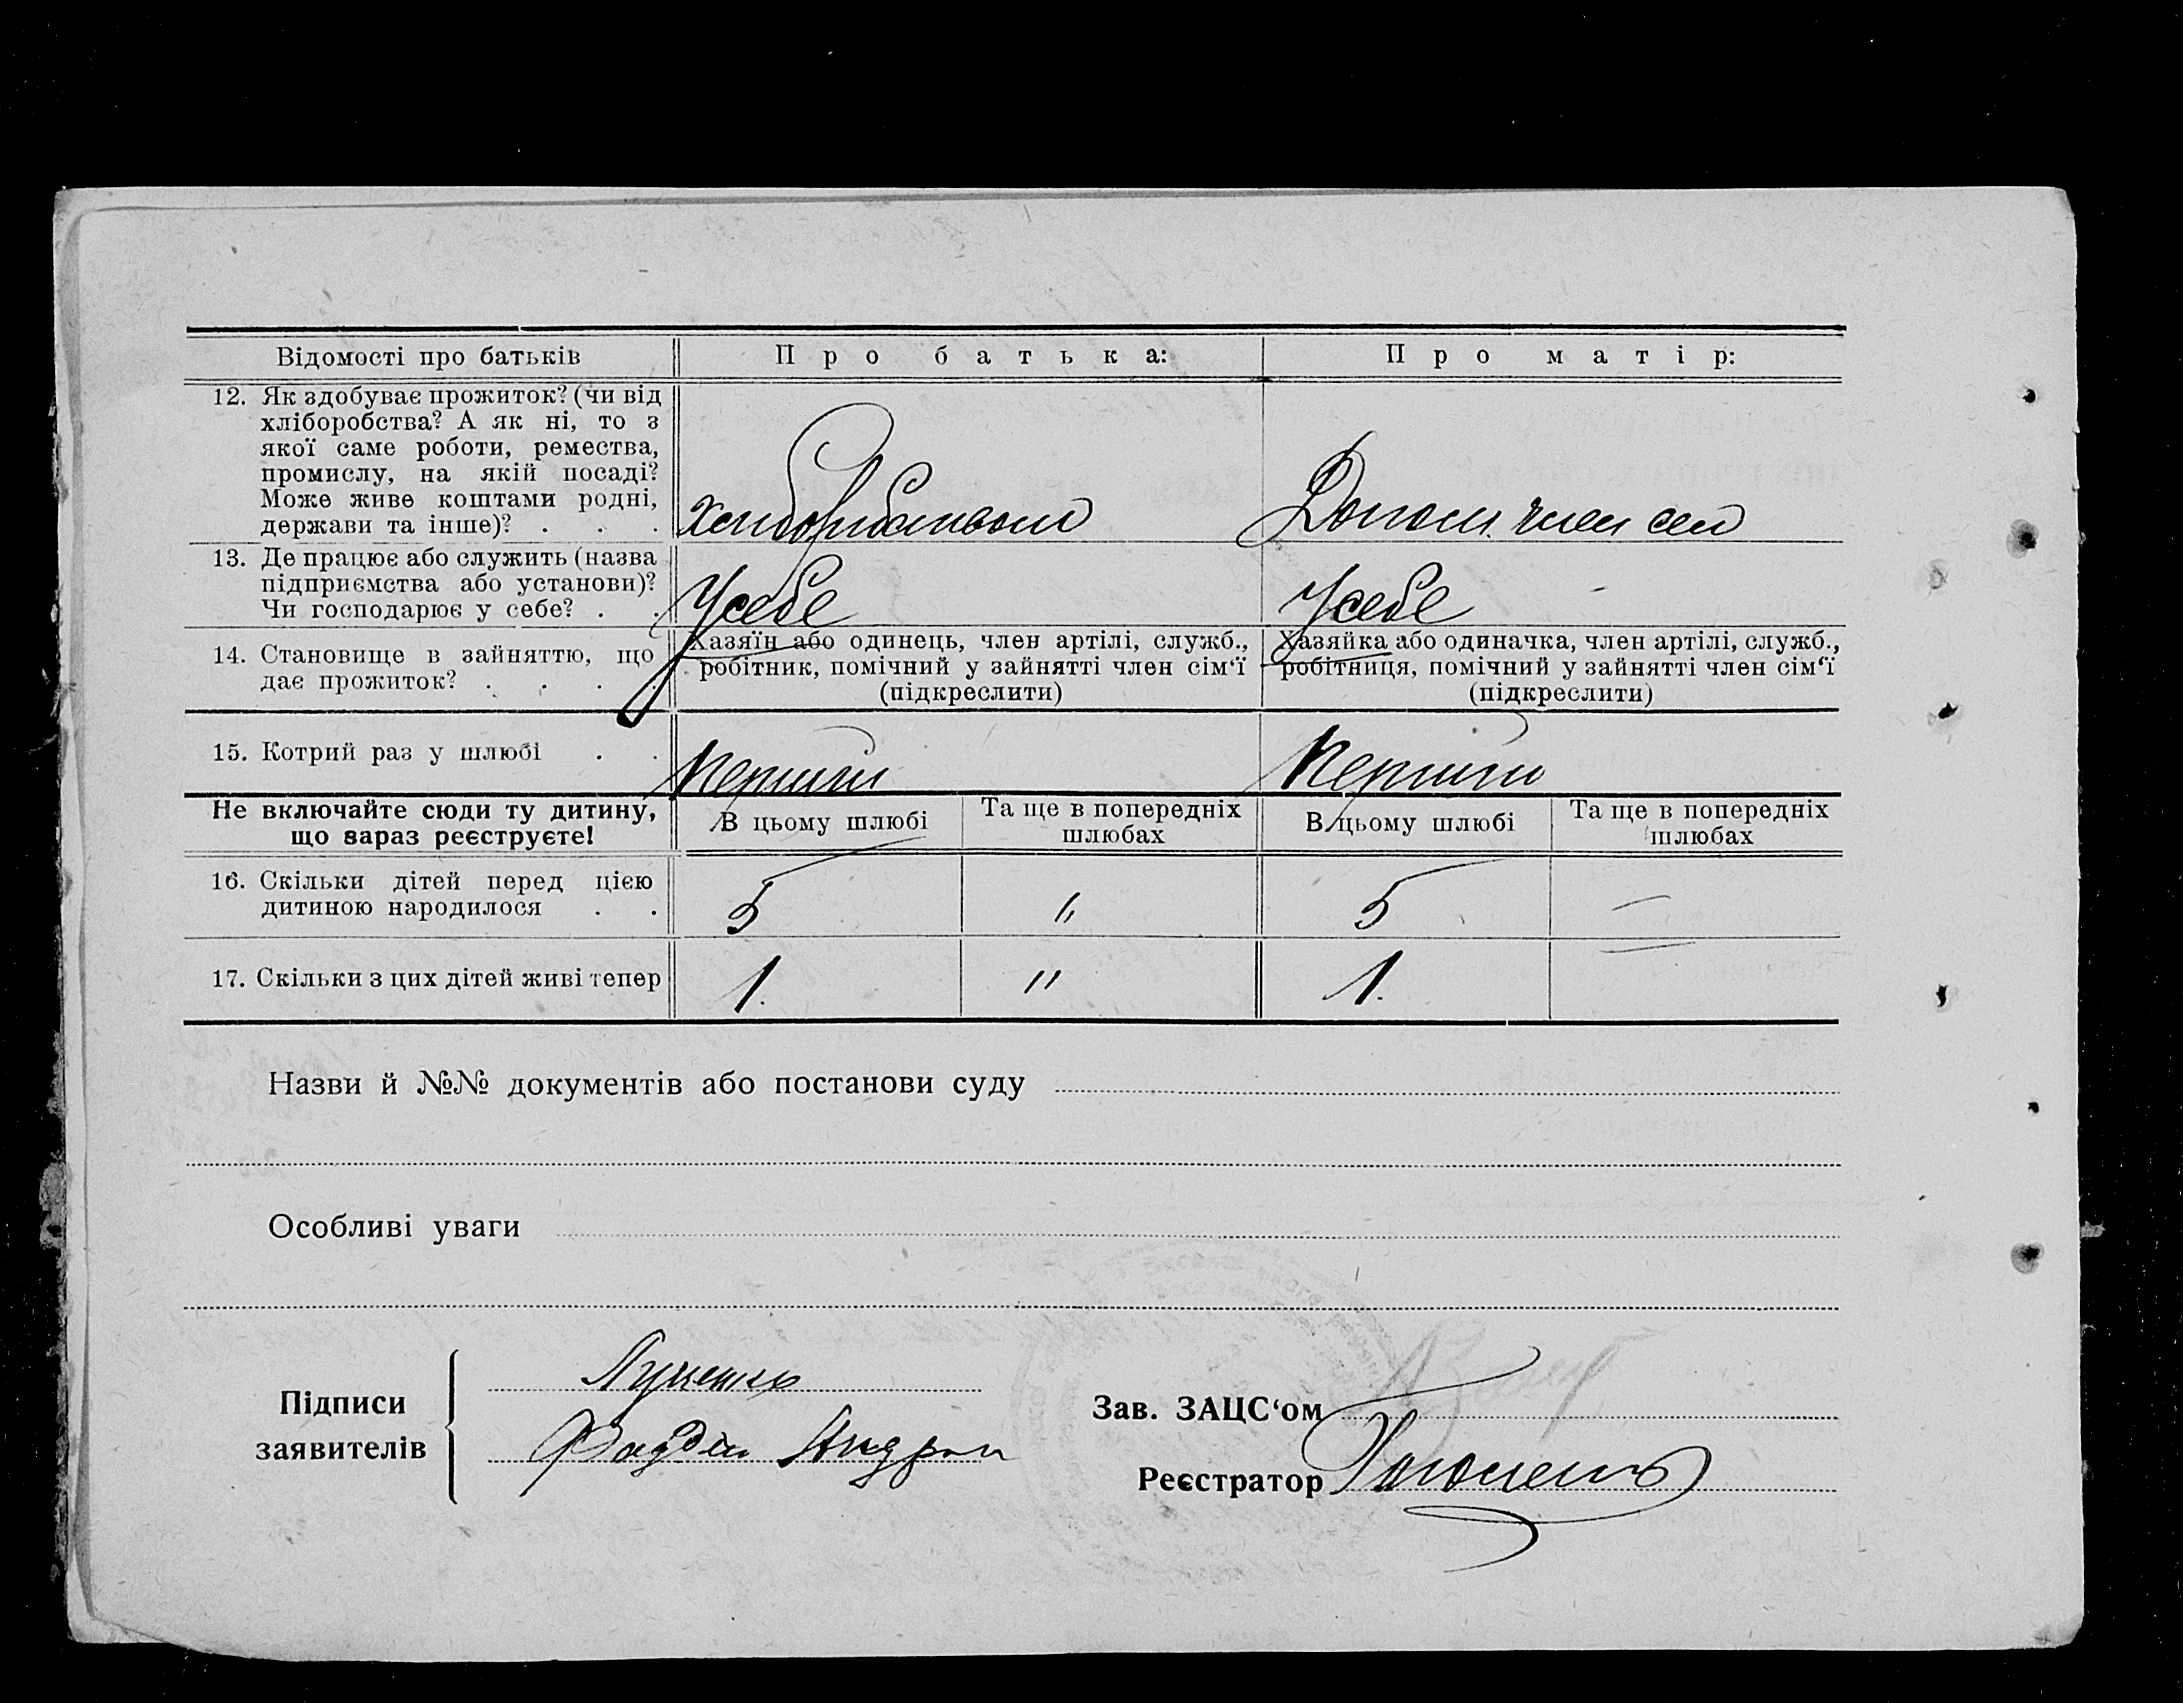 Відомості про батьків
Про батька:
Про матір:
12. Як здобуває прожиток? (чи від
хліборобства? А як ні, то з
якої саме роботи, ремества,
промислу, на якій посаді?
Може живе коштами родні,
держави та інше)? . . .
Допом. член сем
13. Де працює або служить (назва
підприємства або установи)?
Чи господарює у себе? . .
У себе
У себе
14. Становище в зайняттю, що
дає прожиток? . . . .
Хазяїн або одинець, член артілі, служб.,
робітник, помічний у зайнятті член сім‘ї
(підкреслити)
Хазяйка або одиначка, член артілі, служб.,
робітниця, помічний у зайнятті член сім‘ї
(підкреслити)
15. Котрий раз у шлюбі . .
Не включайте сюди ту дитину,
що зараз реєструєте!
В цьому шлюбі
Та ще в попередніх
шлюбах
В цьому шлюбі
Та ще в попередніх
шлюбах
16. Скільки дітей перед цією
дитиною народилося . .
5 " 5 —
17. Скільки з цих дітей живі тепер
1. " 1. —
Назви й №№ документів або постанови суду
Особливі уваги
Підписи
заявителів
Зав. ЗАЦС‘ом
Реєстратор